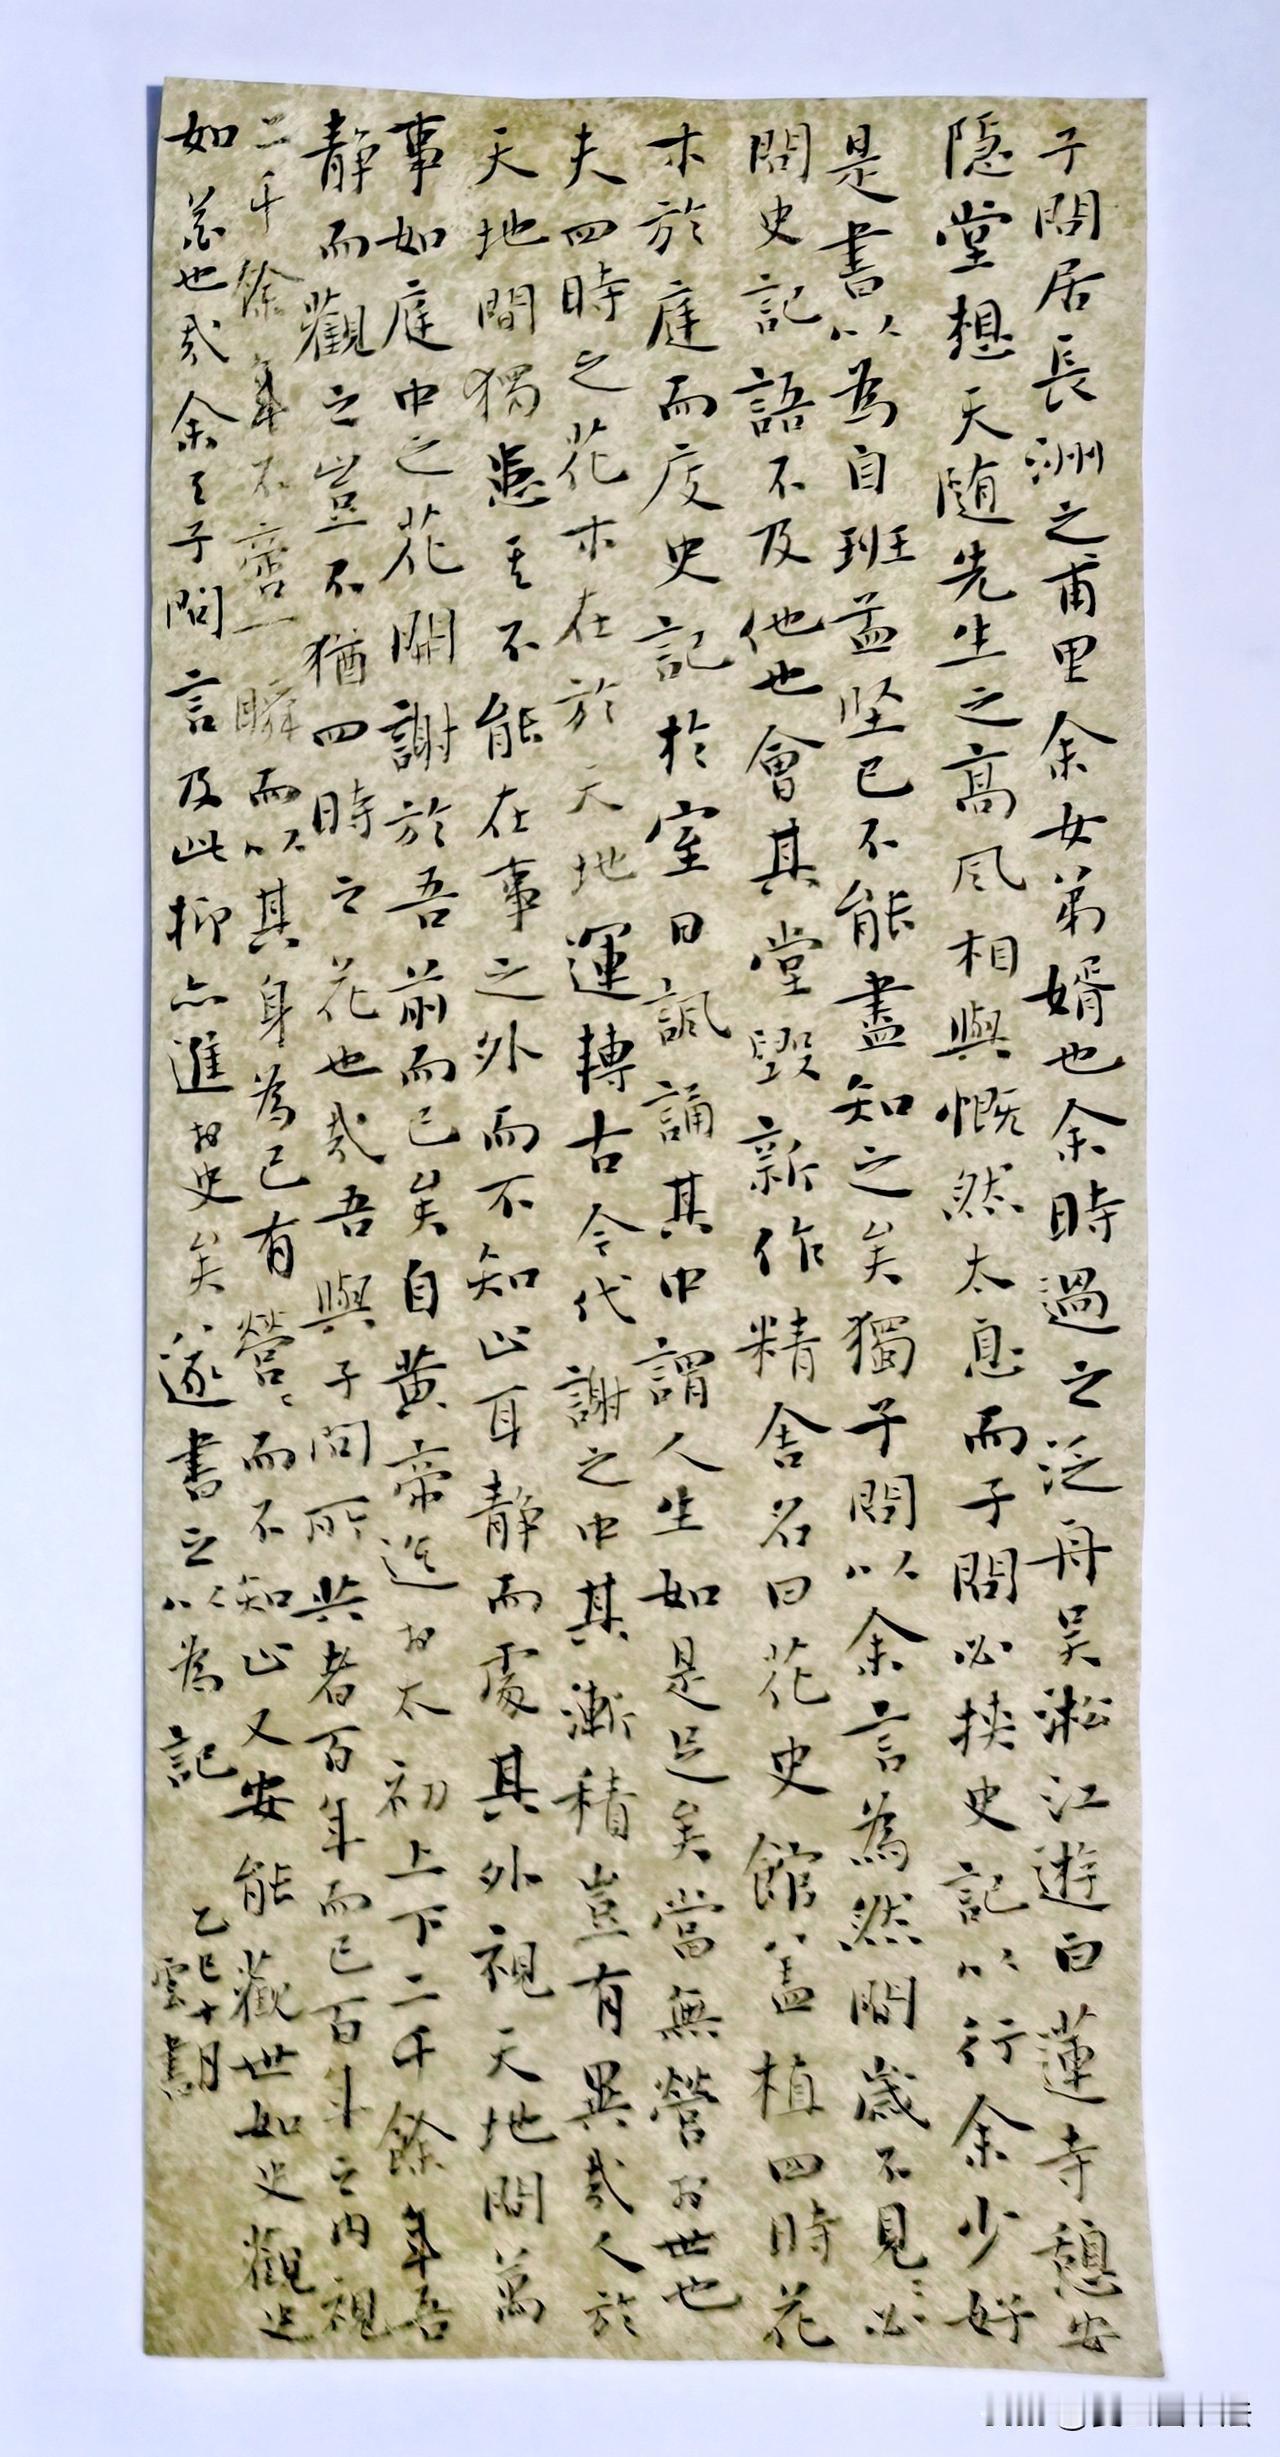 子問居長洲之甫里余女弟婿也余時過之泛舟吳淞江遊白蓮寺憩安
隱堂想天隨先生之高風相與慨然太息而子問必挾史記以行余少好
是書以為自班孟堅已不能盡知之矣獨子問以余言為然間歲不見見必
問史記語不及他也會其堂毀新作精舍名曰花史館蓋植四時花
木於庭而庋史記於室日諷誦其中謂人生如是足矣當無營於世也
夫四時之花木在於天地運轉古今代謝之中其漸積豈有異哉人於
天地間獨患其不能在事之外而不知止耳靜而處其外視天地間萬
事如庭中之花開謝於吾前而已矣自黃帝迄於太初上下二千餘年吾
靜而觀之豈不猶四時之花也哉吾與子問所共者百年而已百年之內視
二千餘年不啻一瞬而以其身為己有營營而不知止又安能觀世如史觀史
如花也哉余與子問言及此抑亦進於史矣遂書之以為記
乙巳十月
雲書